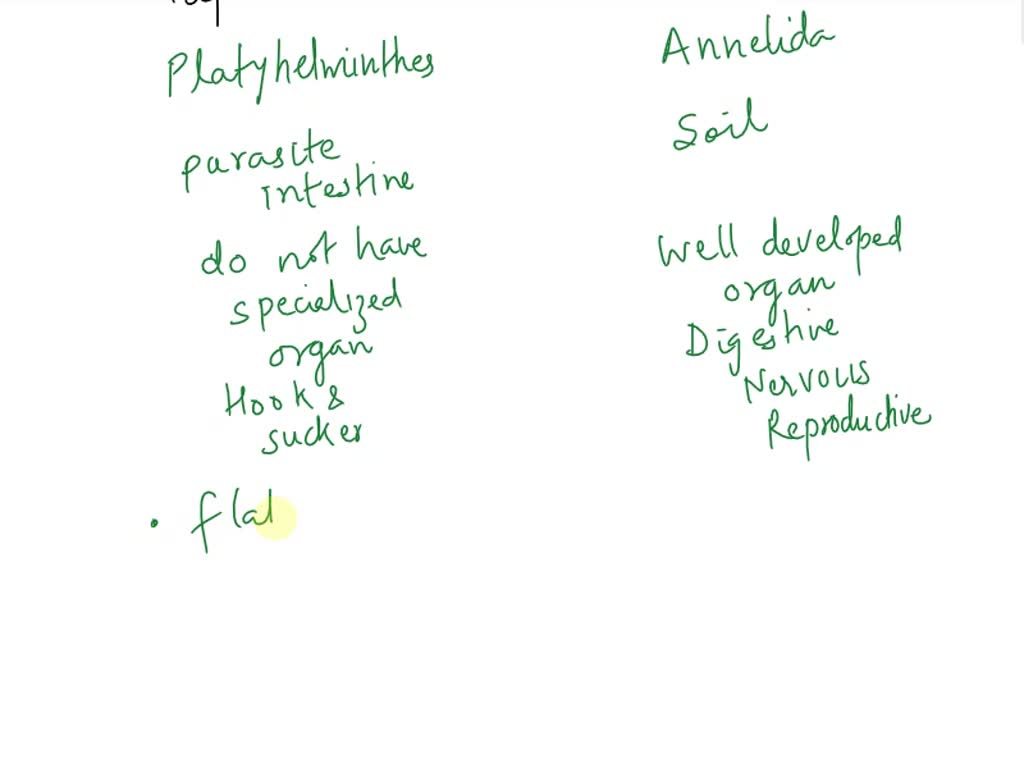 Platyhelminthes
Annelida
parasite
intestine
Soil
do not have
specialized
organ
Hook &
sucker
Well developed
organ
Digestive
Nervous
Reproductive
• flat